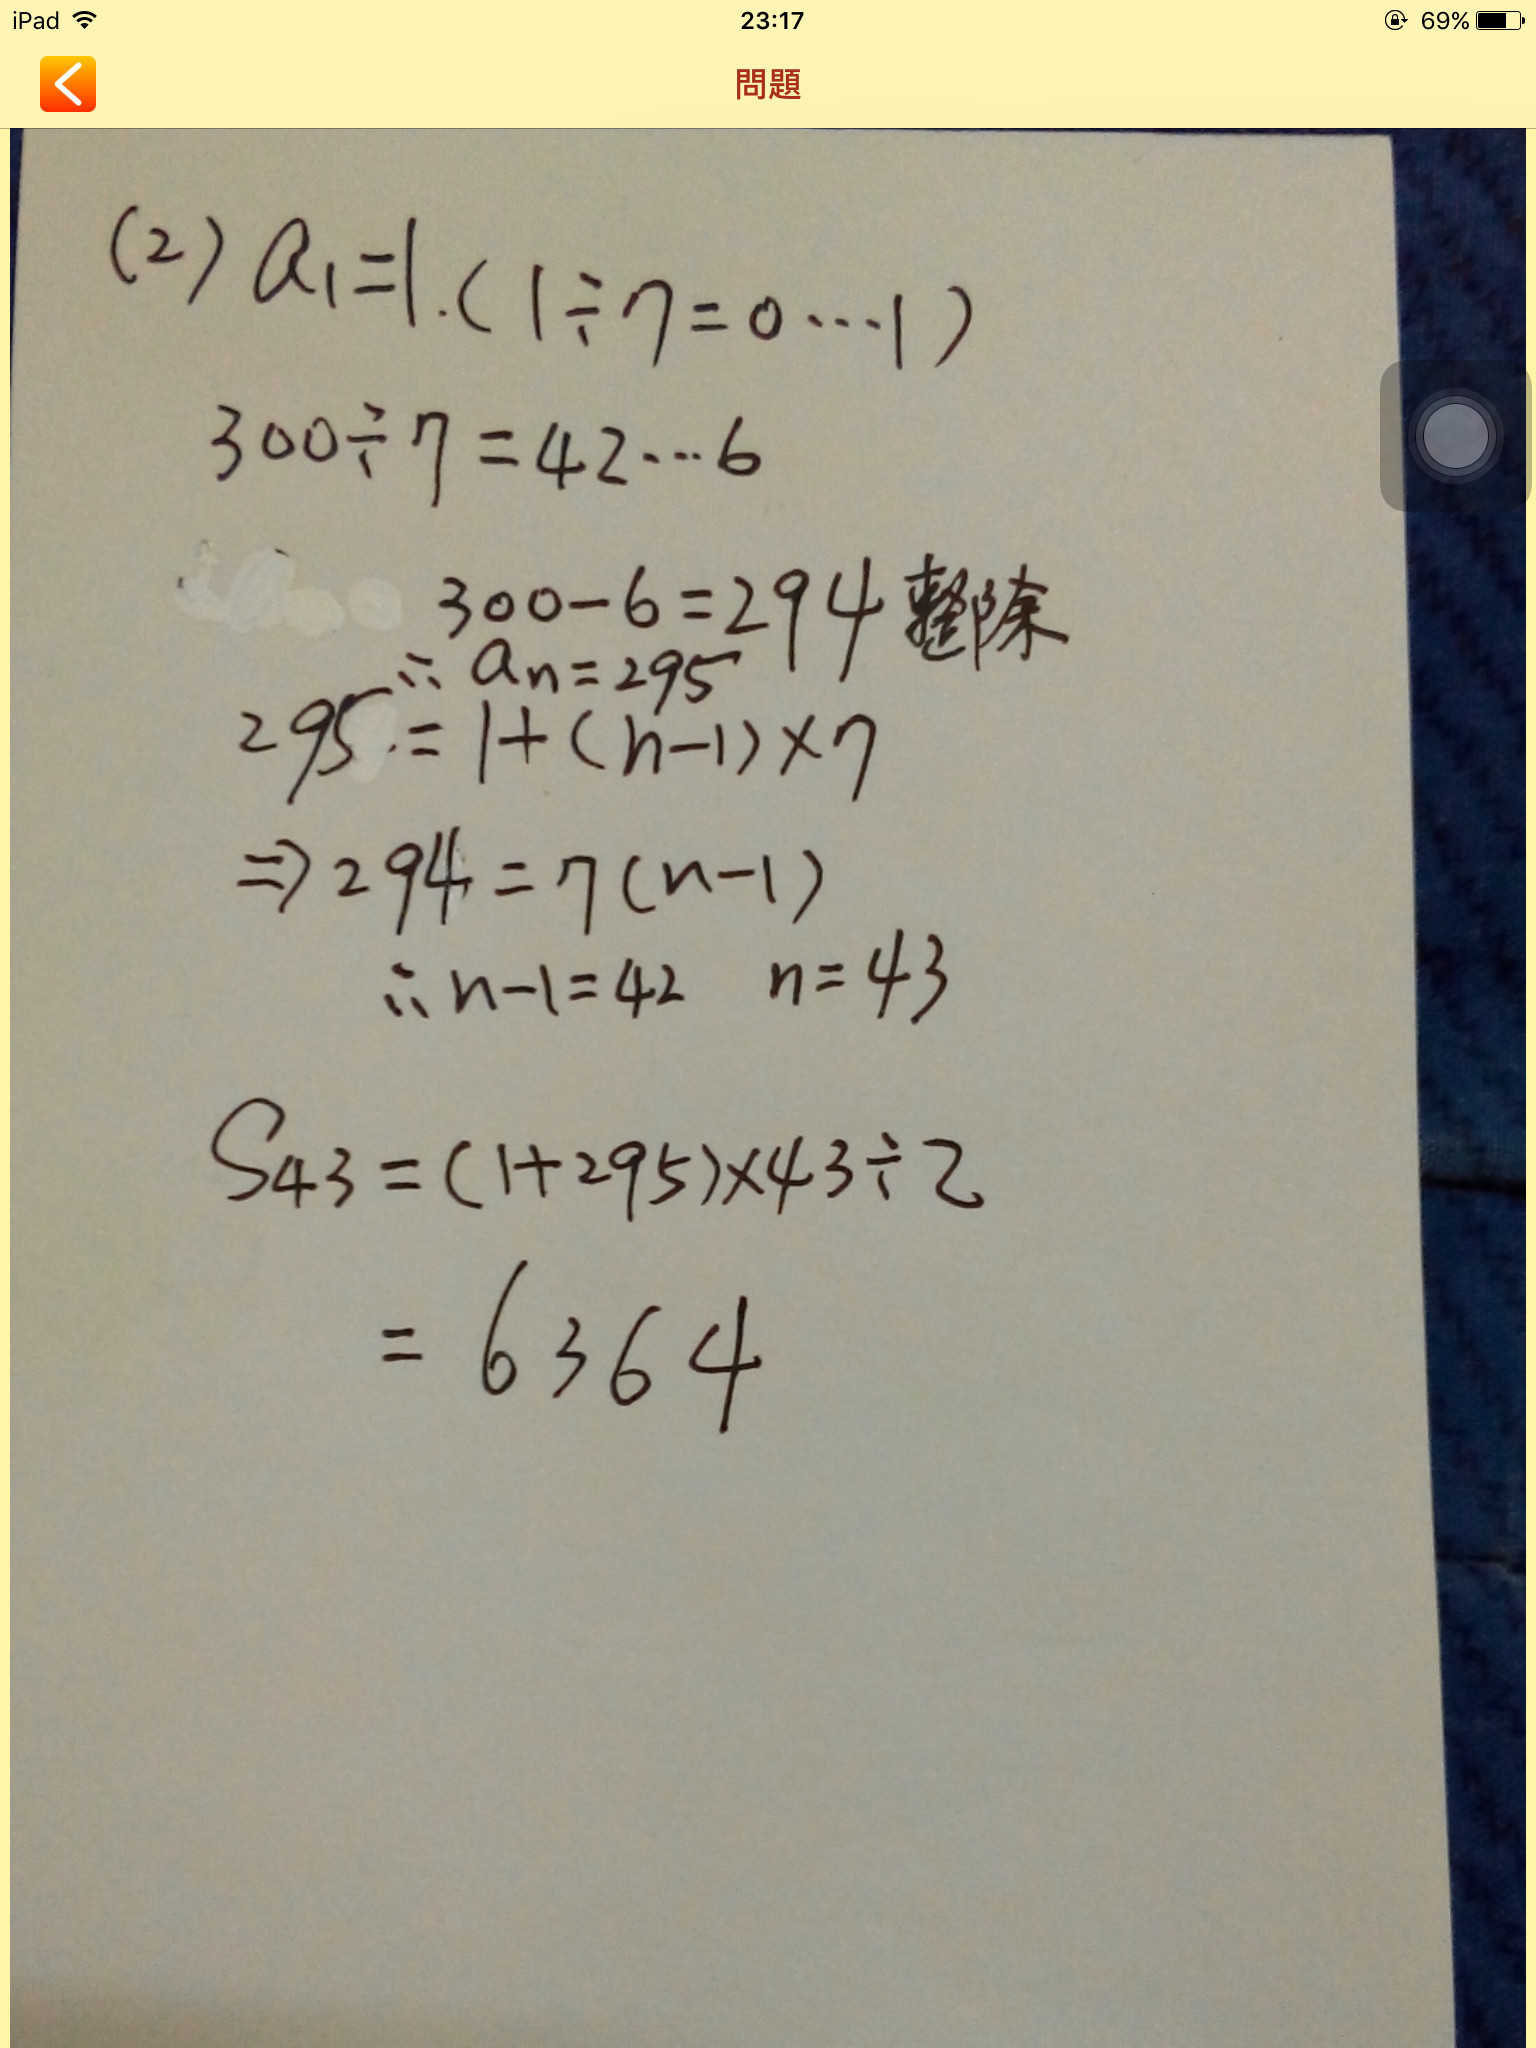 iPad 23:17 69%
問題
(2) a₁=1.(1÷7=0…1)
300÷7=42…6
300-6=294 整除
∴ aₙ=295
295=1+(n-1)×7
⇒294=7(n-1)
∴n-1=42 n=43
S₄₃=(1+295)×43÷2
=6364